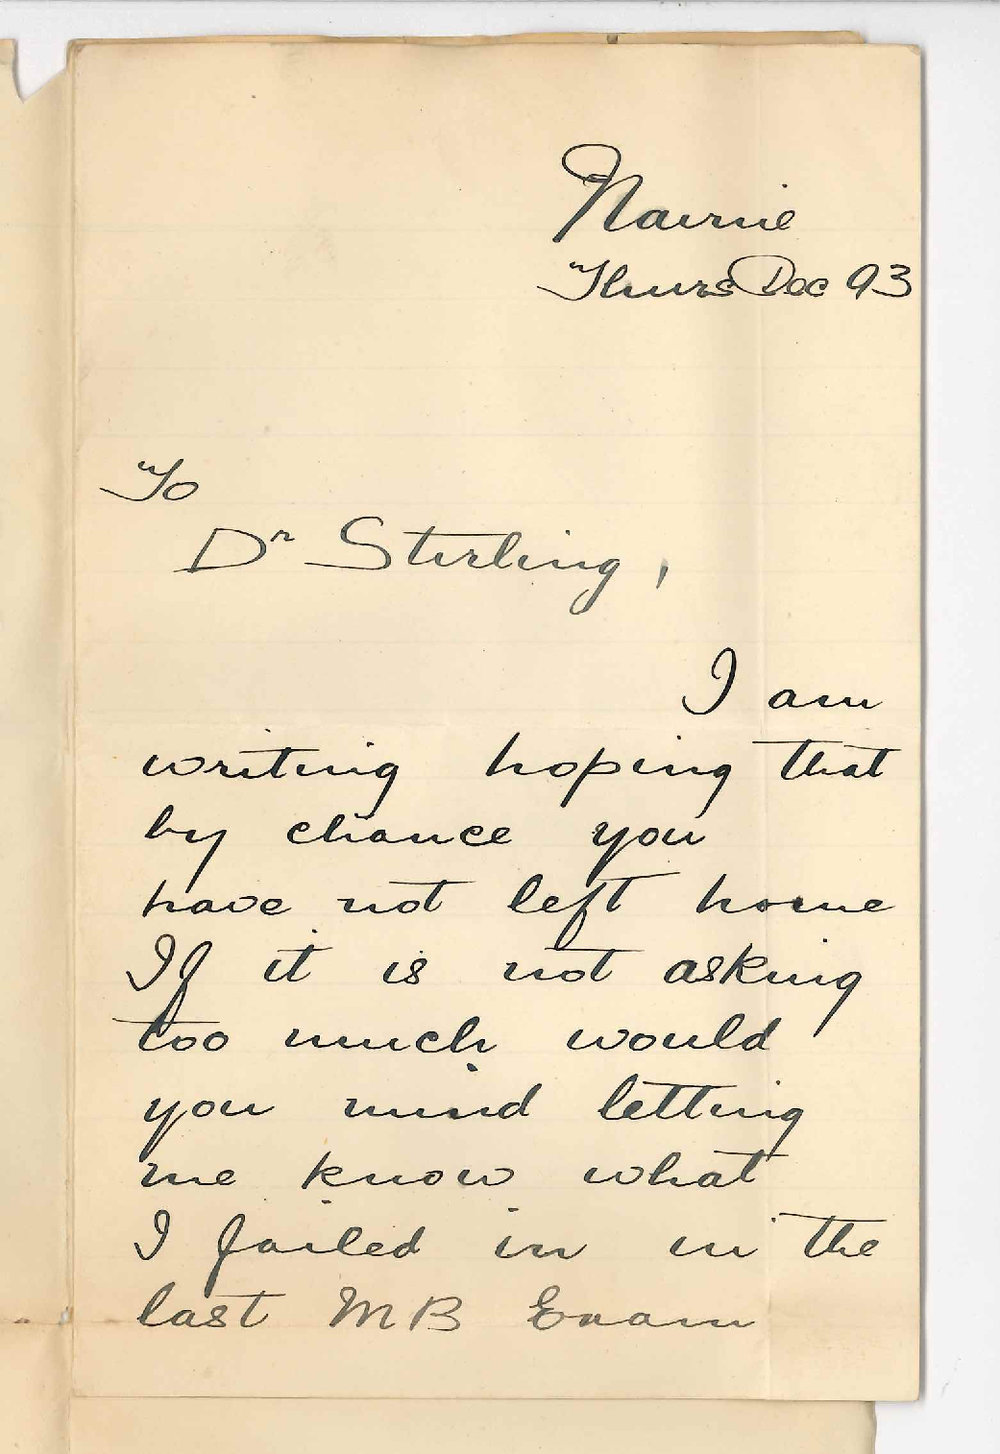 Nairne
Thurs Dec 93
To
Dr Stirling,
I am
writing hoping that
by chance you
have not left home
If it is not asking
too much would
you mind letting
me know what
I failed in in the
last MB Exam